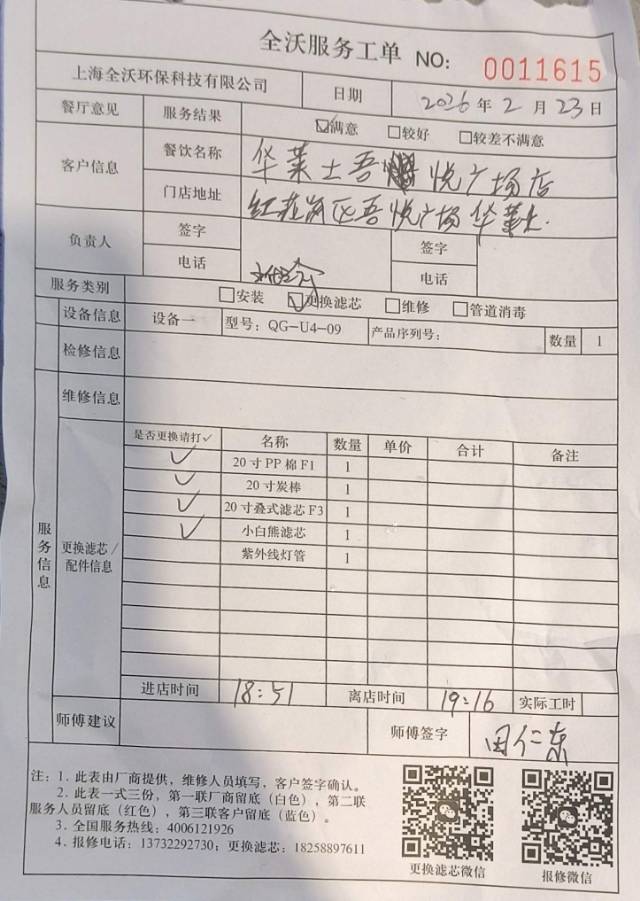 全沃服务工单 NO: 0011615
上海全沃环保科技有限公司 日期 2026年2月23日
餐厅意见 服务结果 ☑满意 □较好 □较差不满意
客户信息 餐饮名称 华莱士吾悦广场店
门店地址 吾悦广场华莱士
负责人 签字 签字
电话 电话
服务类别 □安装 ☑更换滤芯 □维修 □管道消毒
设备信息 设备一 型号: QG-U4-09 产品序列号: 数量 1
检修信息
维修信息
服务信息
更换滤芯/配件信息
是否更换请打✓ 名称 数量 单价 合计 备注
✓ 20寸PP棉F1 1
✓ 20寸炭棒 1
✓ 20寸叠式滤芯F3 1
✓ 小白熊滤芯 1
紫外线灯管 1
进店时间 18:51 离店时间 19:16 实际工时
师傅建议 师傅签字 田仁东
注: 1. 此表由厂商提供,维修人员填写,客户签字确认。
2. 此表一式三份,第一联厂商留底(白色),第二联
服务人员留底(红色),第三联客户留底(蓝色)。
3. 全国服务热线: 4006121926
4. 报修电话: 13732292730; 更换滤芯: 18258897611
更换滤芯微信 报修微信